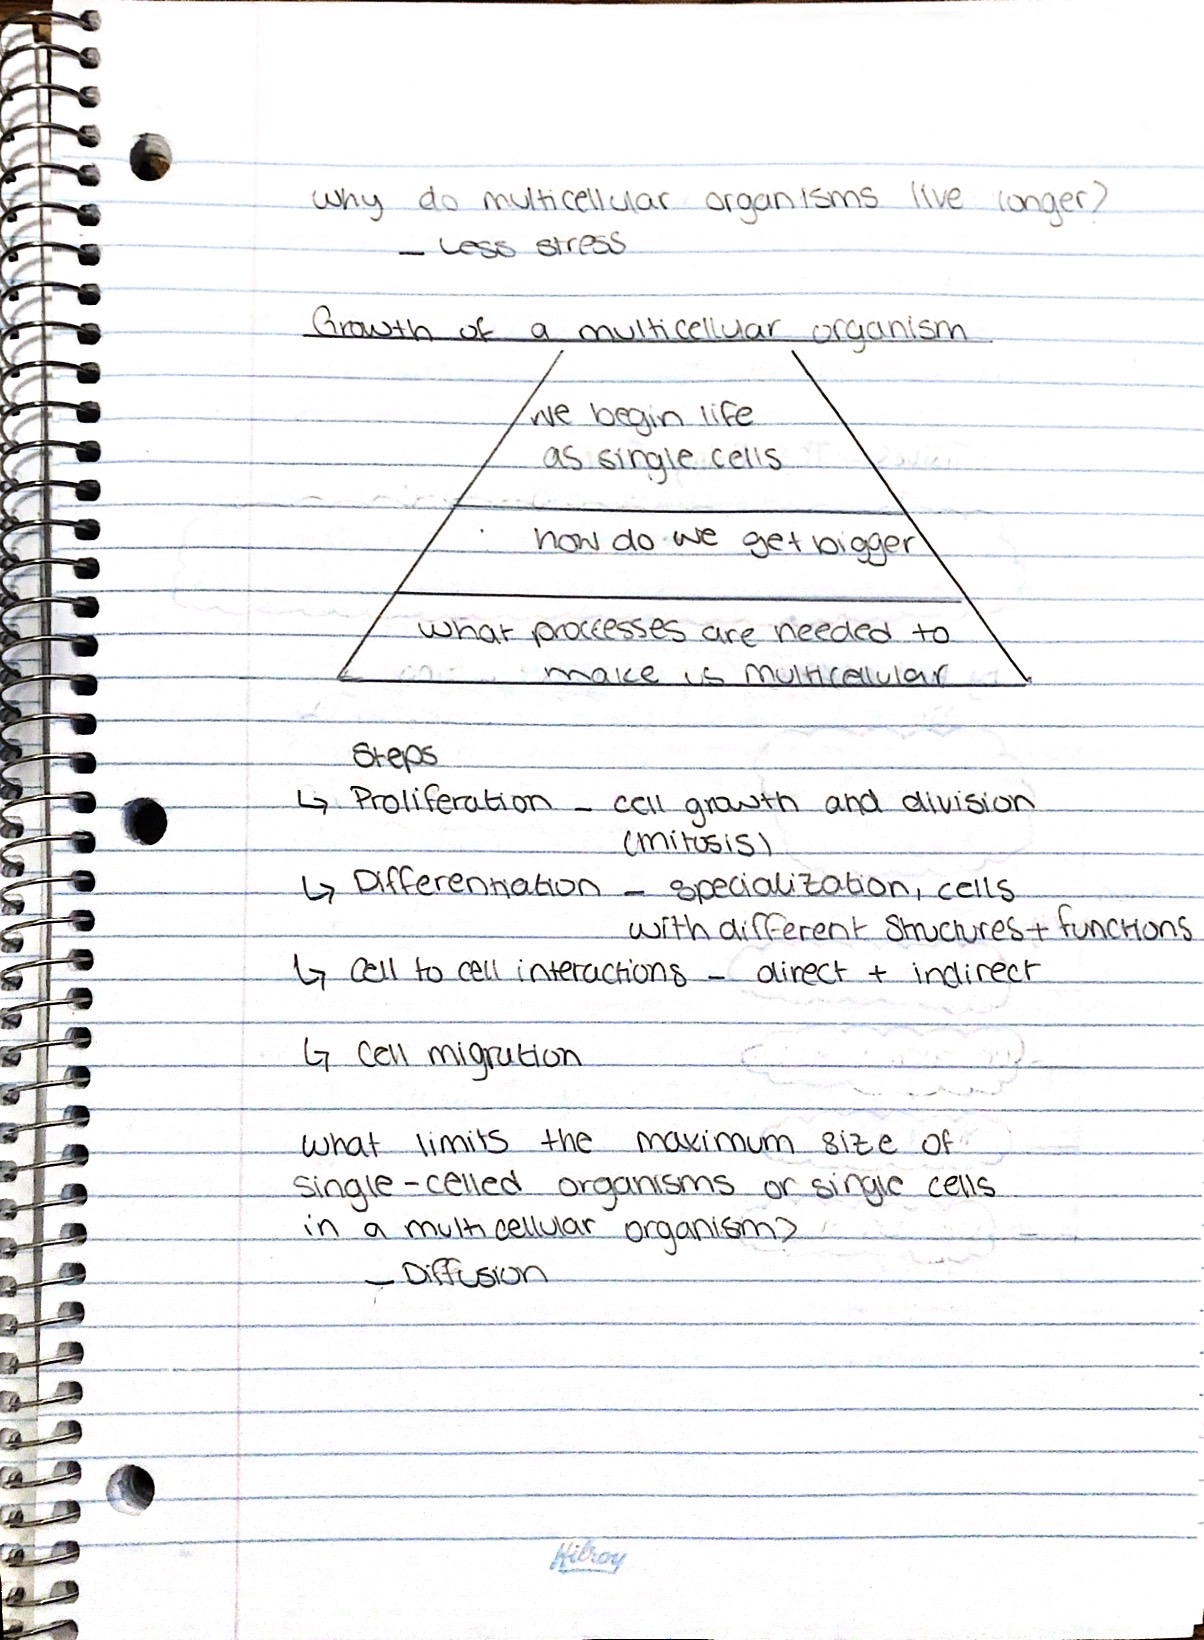 Why do multicellular organisms live longer?
– Less stress
Growth of a multicellular organism
We begin life
as single cells
how do we get bigger
What proccesses are needed to
make us multicellular
Steps
↳ Proliferation – cell growth and division
(mitosis)
↳ Differentiation – specialization, cells
with different structures + functions
↳ Cell to cell interactions – direct + indirect
↳ Cell migration
What limits the maximum size of
single-celled organisms or single cells
in a multicellular organism?
– Diffusion
Hilroy